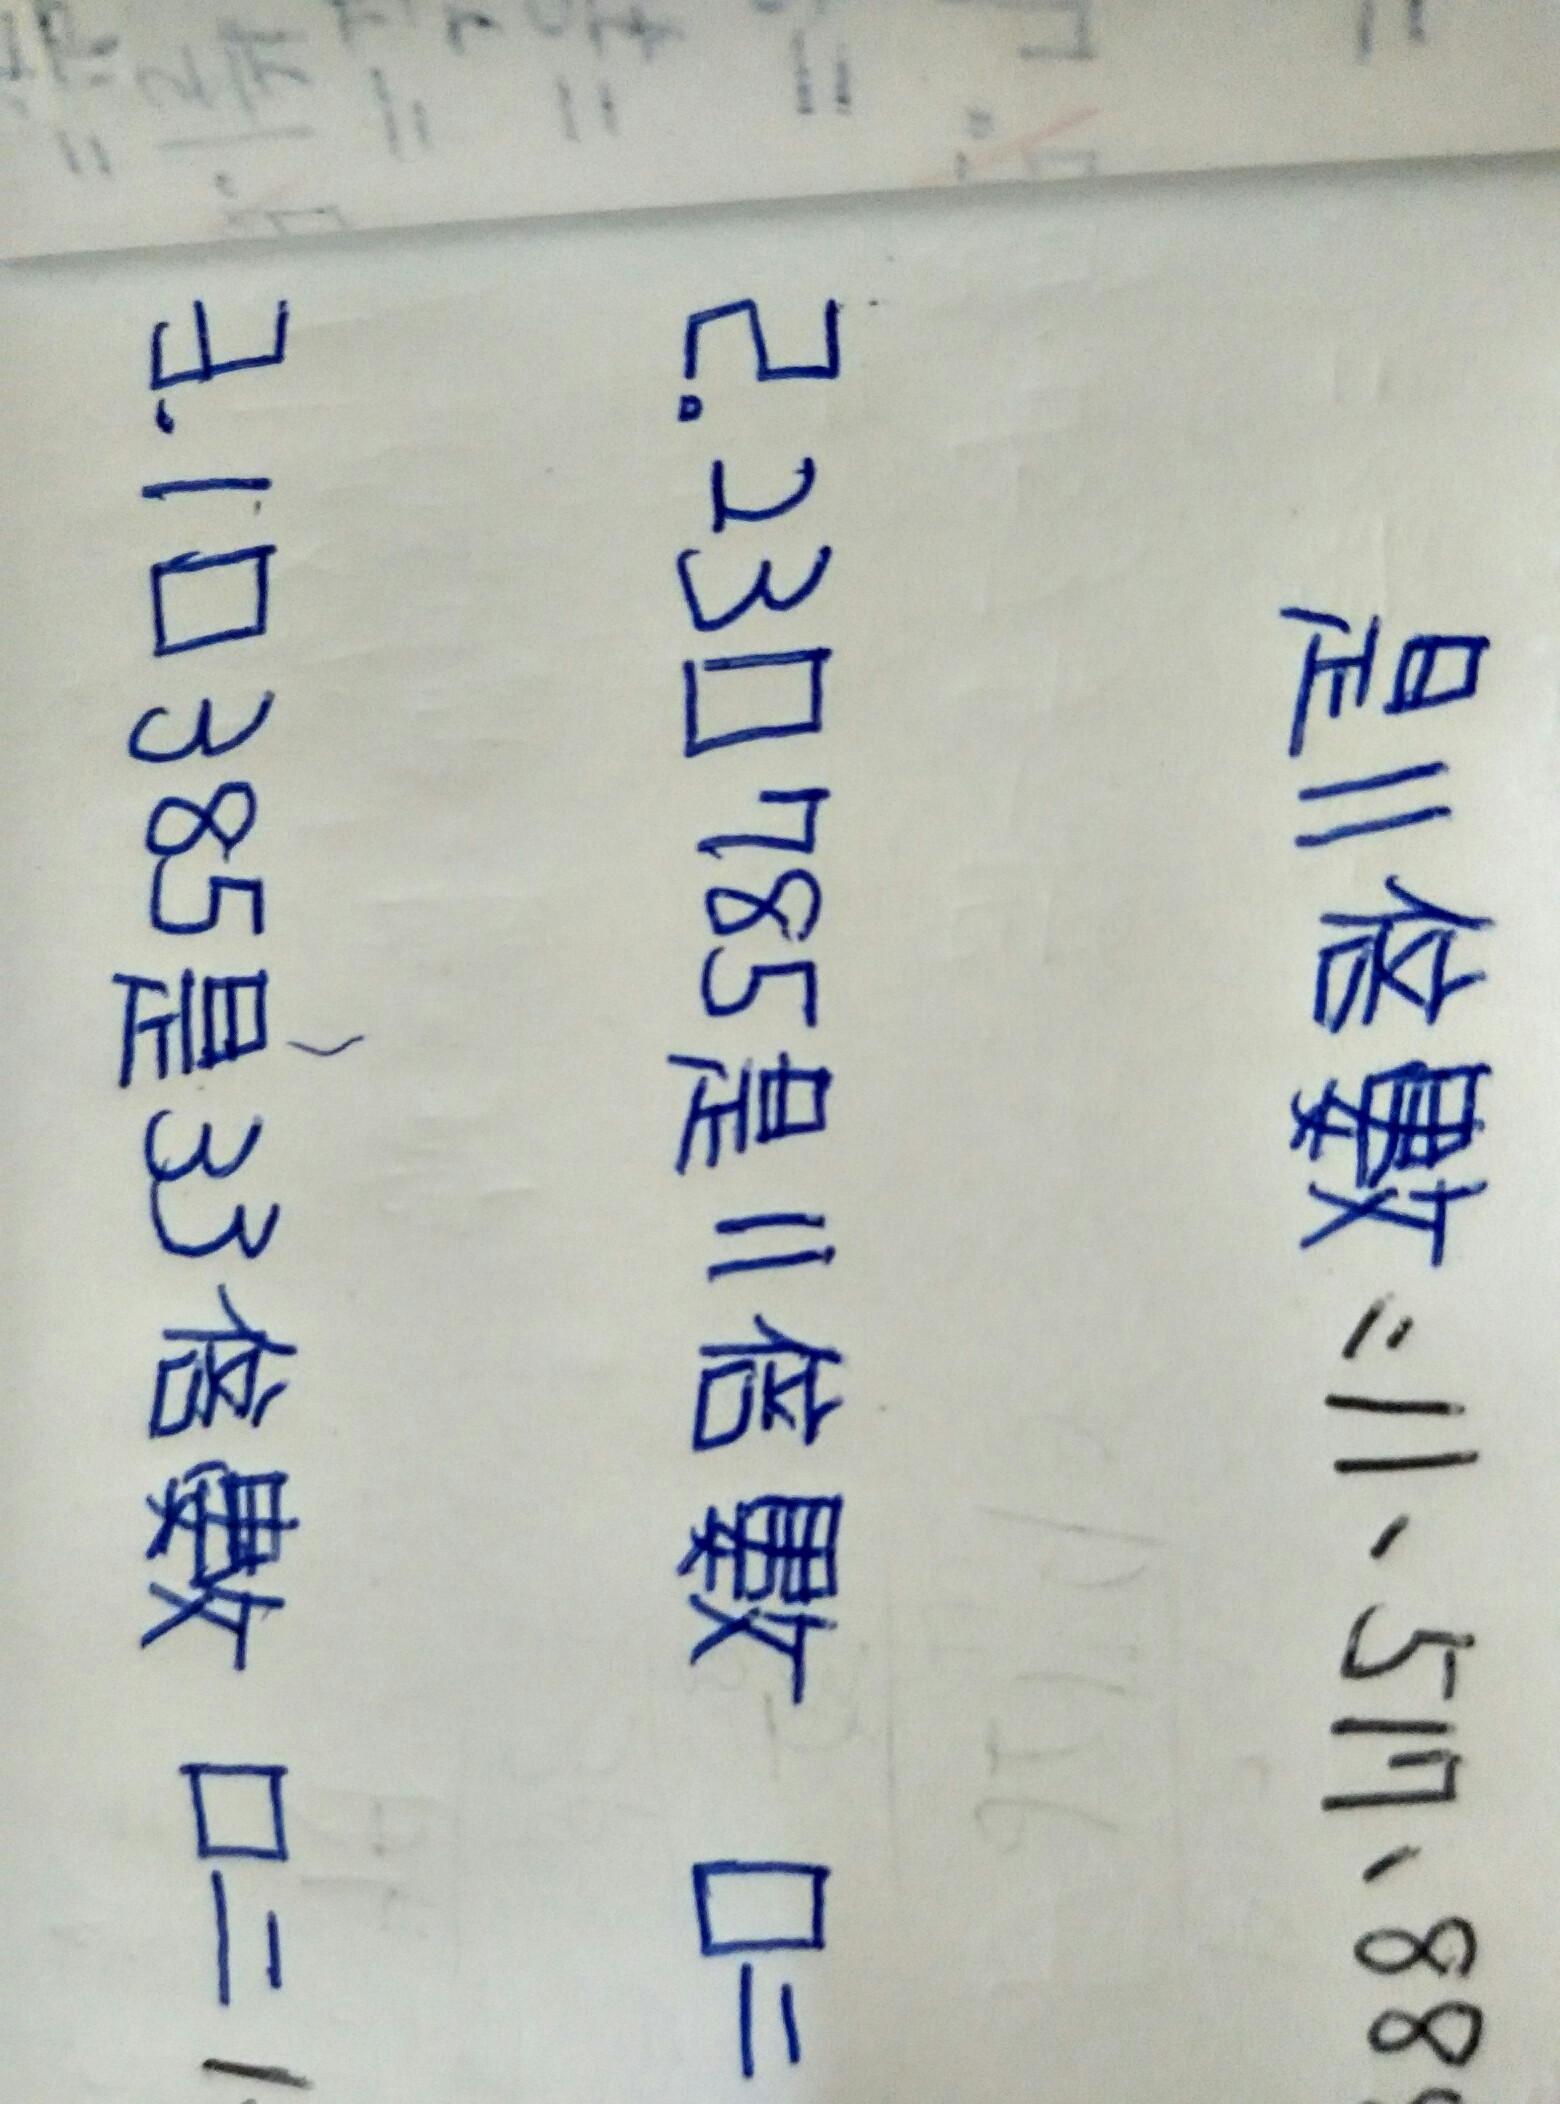 是11倍數:11、517、88
2.23□785是11倍數 □=
3.1□385是33倍數 □=1